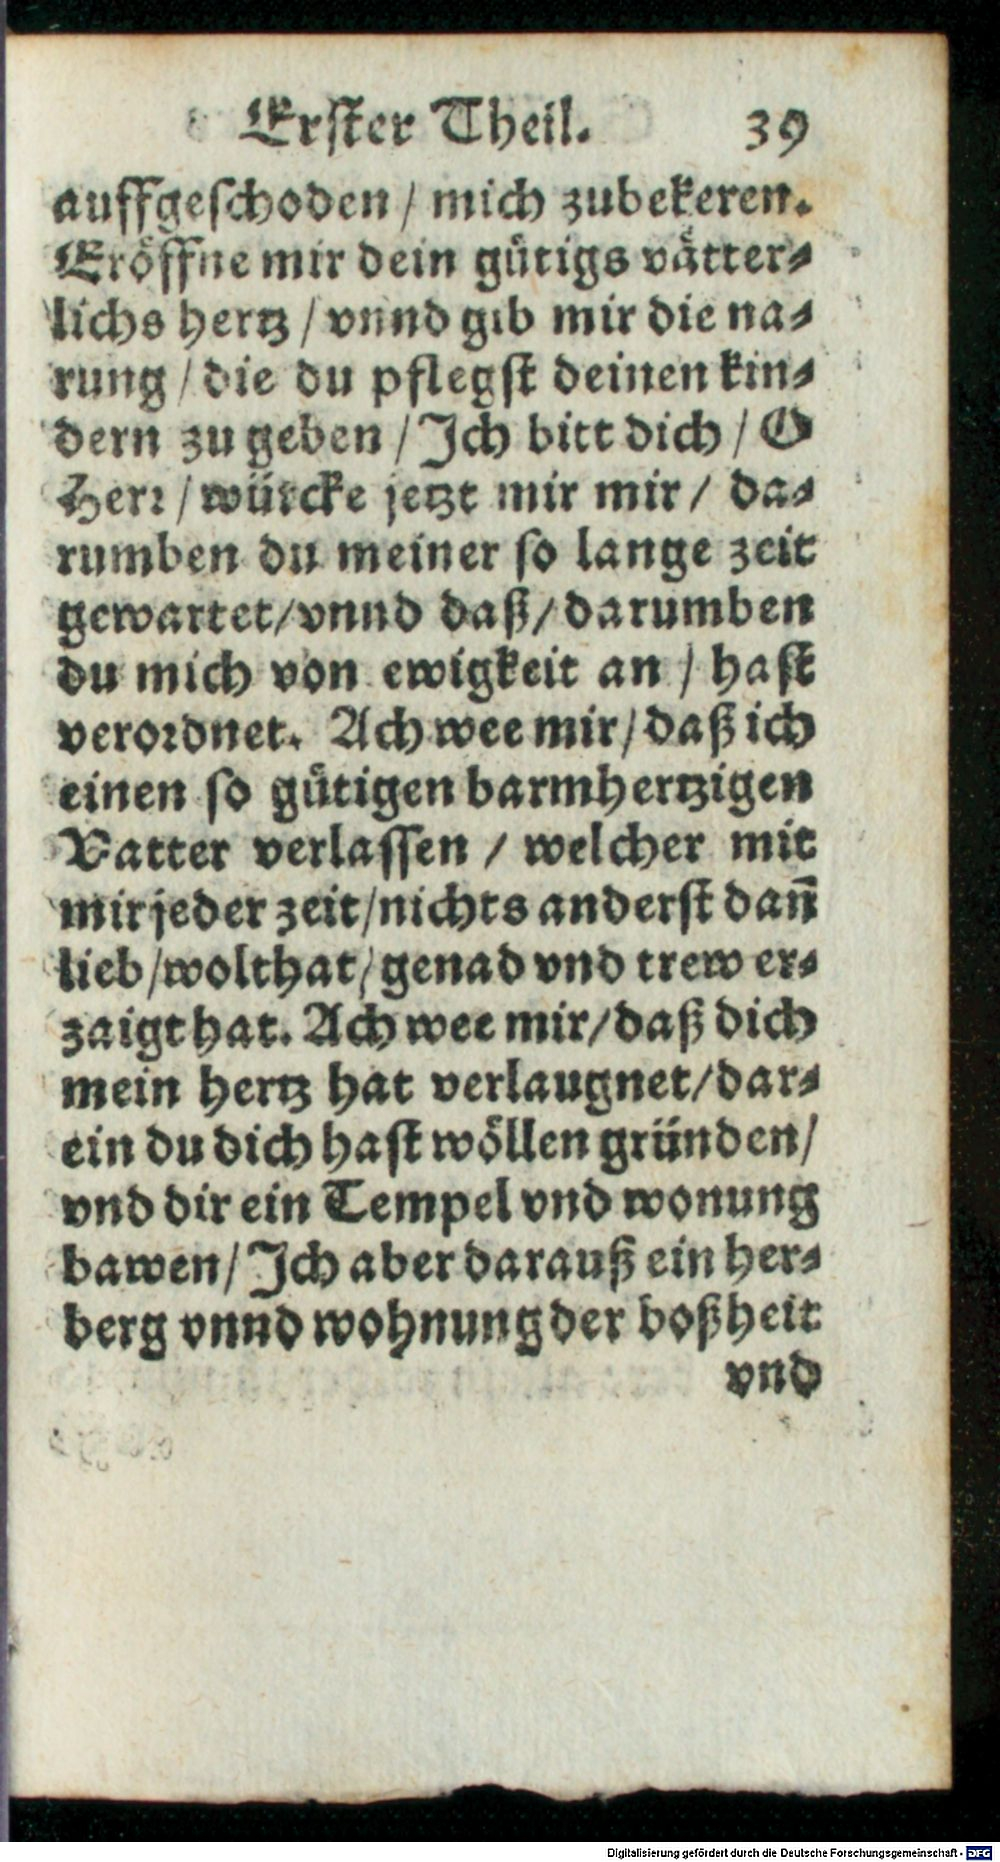 Erster Theil. 39
auffgeschoden / mich zubekeren.
Eröffne mir dein gütigs vätter-
lichs hertz / vnnd gib mir die na-
rung / die du pflegst deinen kin-
dern zu geben / Ich bitt dich / O
Herr / würcke jetzt mir mir / da-
rumben du meiner so lange zeit
gewartet / vnnd daß / darumben
du mich von ewigkeit an / hast
verordnet. Ach wee mir / daß ich
einen so gütigen barmhertzigen
Vatter verlassen / welcher mit
mir jeder zeit / nichts anderst dañ
lieb / wolthat / genad vnd trew er-
zaigt hat. Ach wee mir / daß dich
mein hertz hat verlaugnet / dar-
ein du dich hast wöllen gründen /
vnd dir ein Tempel vnd wonung
bawen / Ich aber darauß ein her-
berg vnnd wohnung der boßheit
vnd
Digitalisierung gefördert durch die Deutsche Forschungsgemeinschaft - DFG